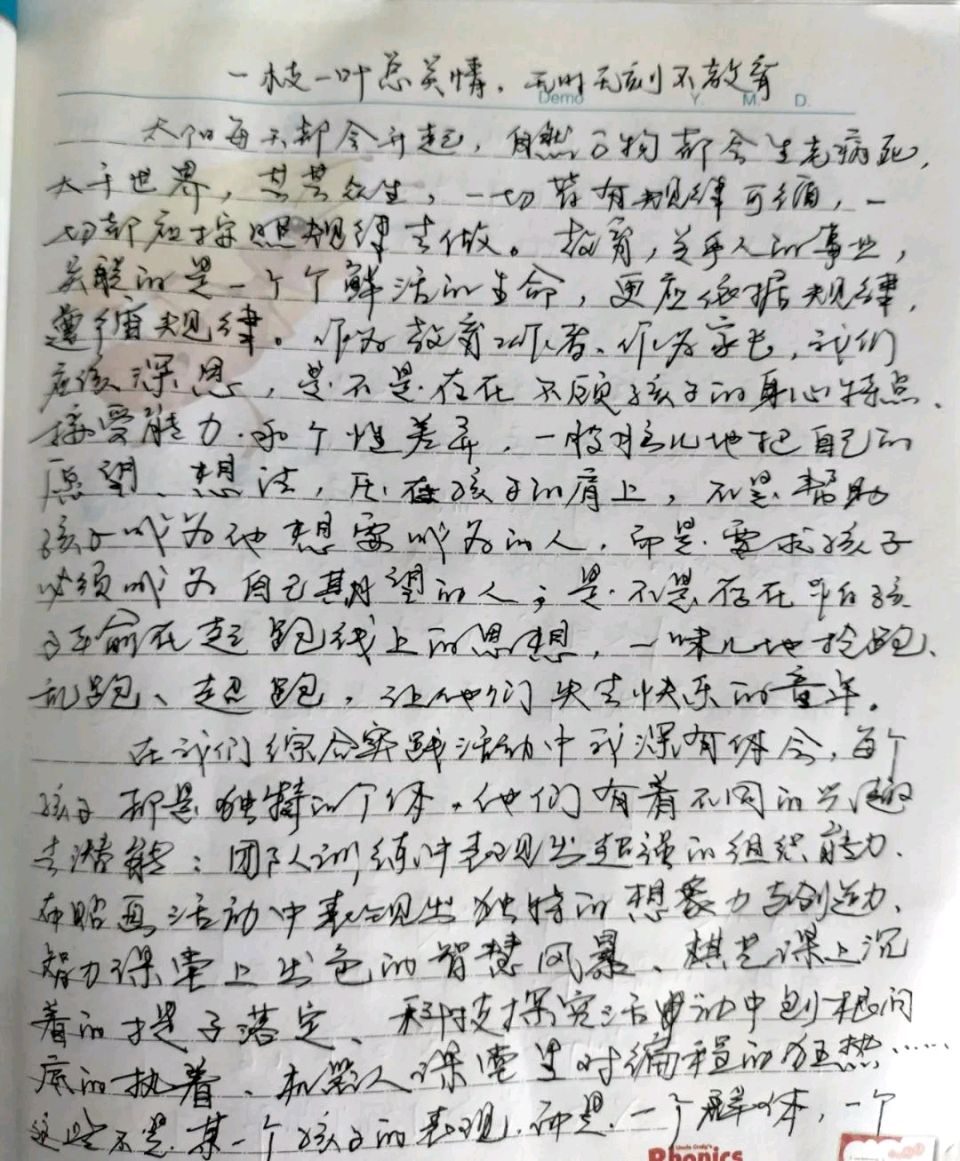 一枝一叶总关情，无时无刻不教育
Demo Y. M. D.
太阳每天都会升起，自然万物都会生老病死，
大千世界，芸芸众生，一切皆有规律可循，一
切都应按照规律去做。教育，关乎人的事业，
关联的是一个个鲜活的生命，更应依据规律，
遵循规律。作为教育工作者、作为家长，我们
应该深思，是不是存在不顾孩子的身心特点、
接受能力和个性差异，一股脑儿地把自己的
愿望、想法，压在孩子的肩上，不是帮助
孩子成为他想要成为的人，而是要求孩子
必须成为自己期望的人；是不是存在怕孩
子输在起跑线上的思想，一味儿地抢跑、
乱跑、超跑，让他们失去快乐的童年。
在我们综合实践活动中我深有体会，每个
孩子都是独特的个体，他们有着不同的兴趣
与潜能：团队训练中表现出超强的组织能力、
在贴画活动中表现出独特的想象力与创造力、
智力课堂上出色的智慧风暴、棋艺课上沉
着的提子落定、科技探究活动中刨根问
底的执着、机器人课堂里对编程的狂热……
这些不是某一个孩子的表现，而是一个群体，一个
Phonics